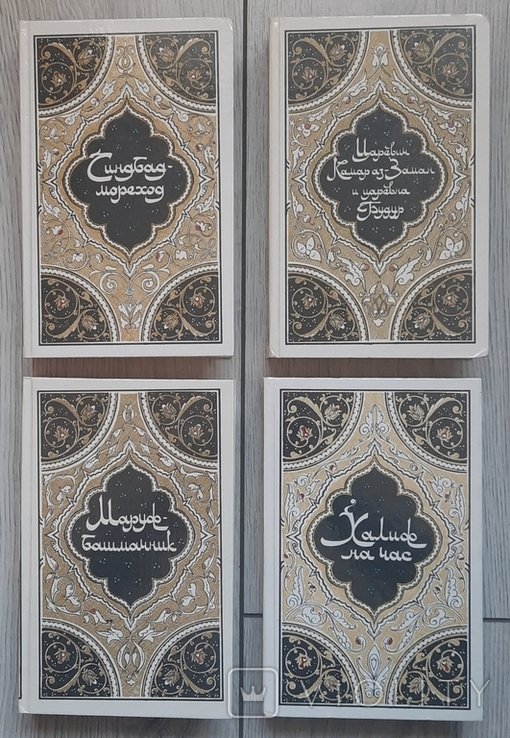 Синдбад-
мореход
Царевич
Камар аз-Заман
и царевна
Будур
Маруф-
башмачник
Халиф
на час
VIOLITY